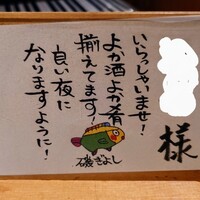 様
いらっしゃいませ!
よか酒よか肴
揃えてます!
良い夜に
なりますように!
磯ぎよし